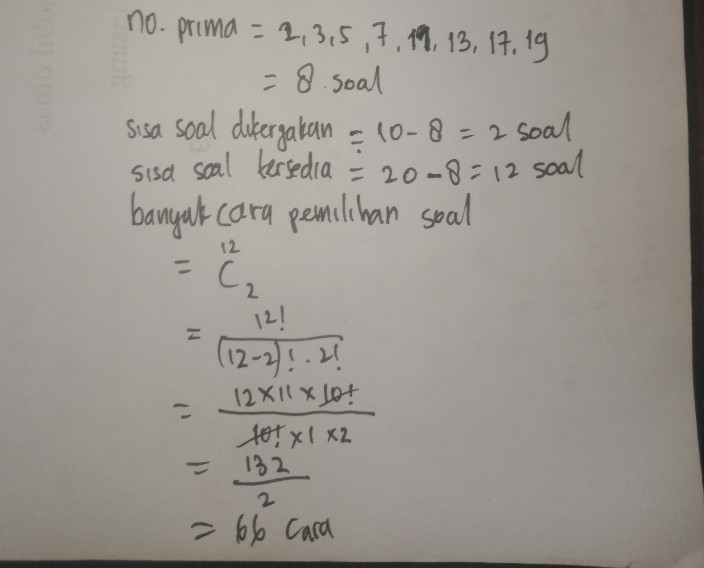 no. prima = 2, 3, 5, 7, 11, 13, 17, 19
= 8 soal
sisa soal dikerjakan = 10 - 8 = 2 soal
sisa soal tersedia = 20 - 8 = 12 soal
banyak cara pemilihan soal
= 12
C
2
= 12!
(12-2)! . 2!
= 12 × 11 × 10!
10! × 1 × 2
= 132
2
= 66 cara